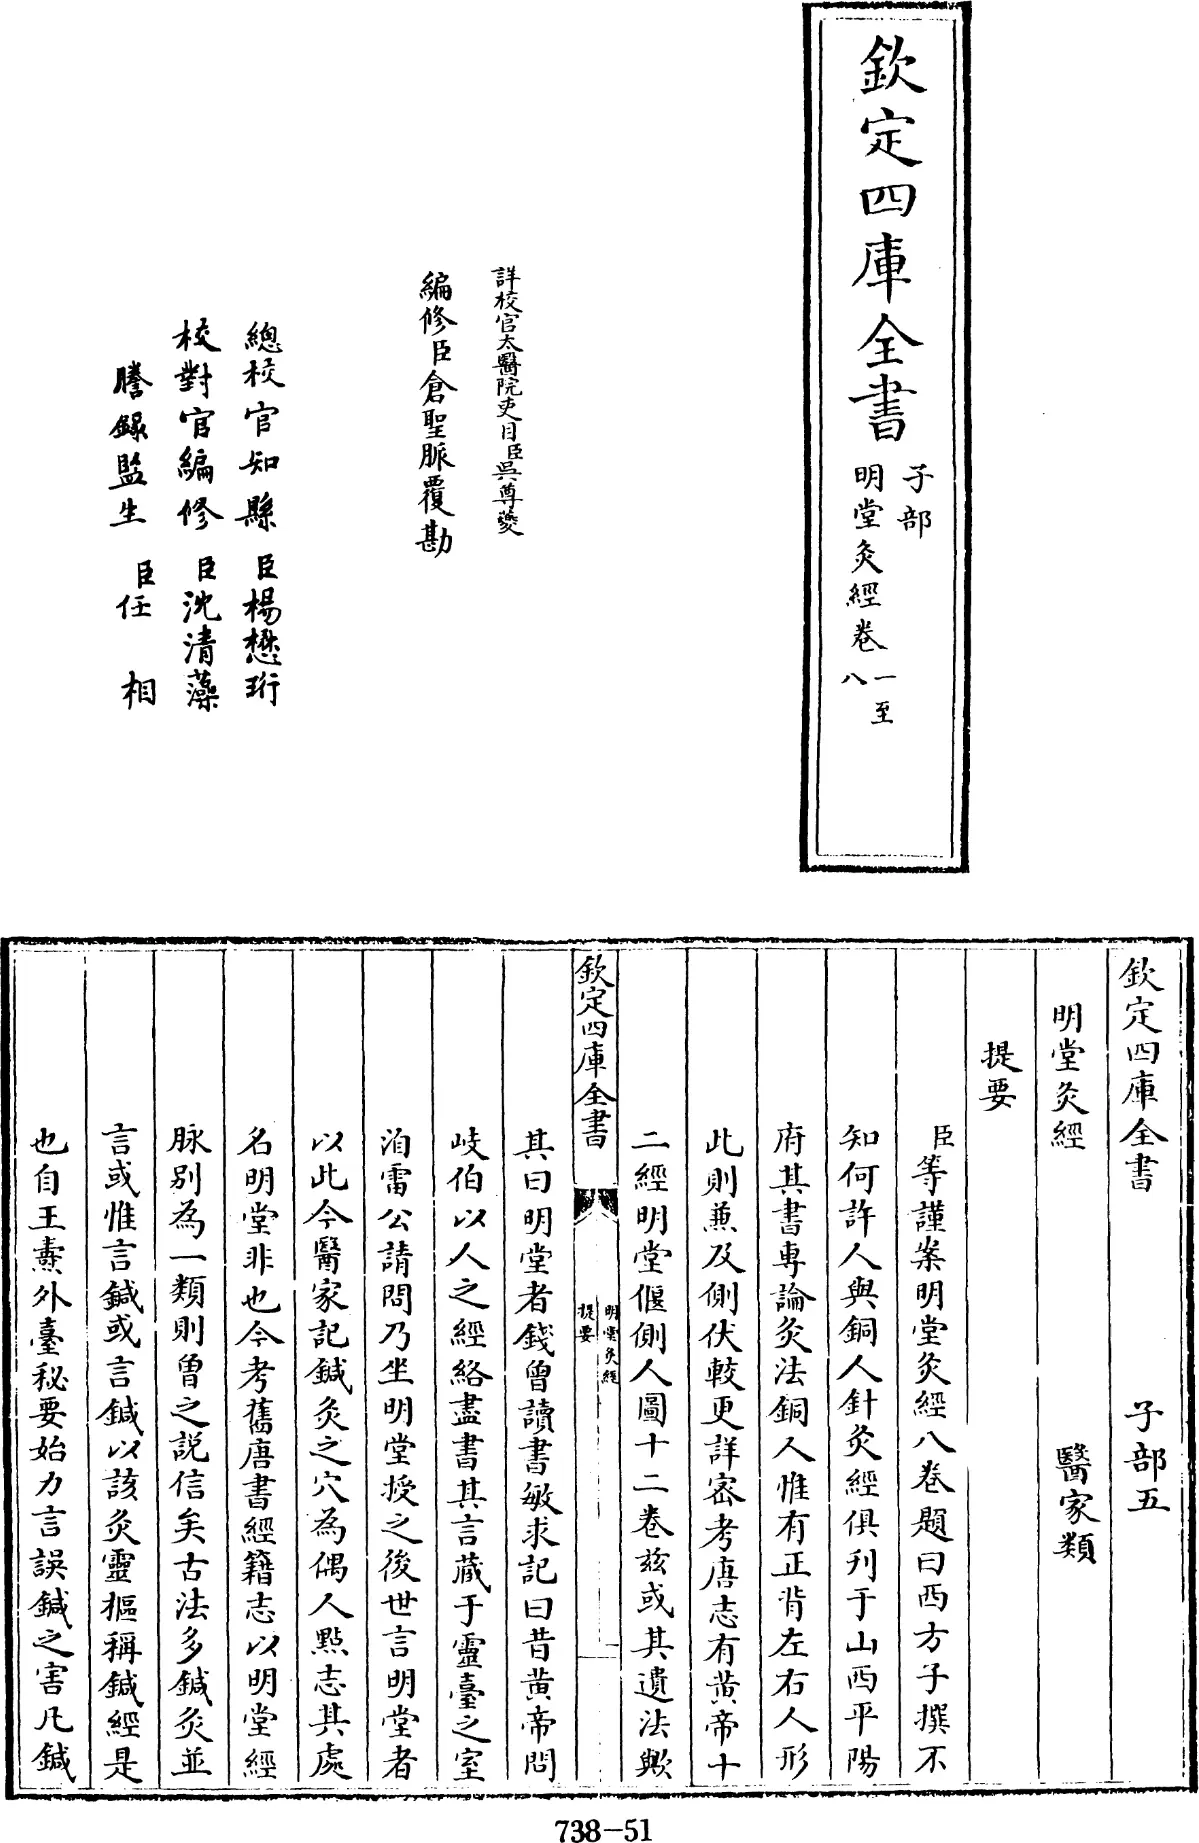 欽定四庫全書
子部
明堂灸經卷一至八
詳校官太醫院吏目臣吳尊夔
編修臣倉聖脈覆勘
總校官知縣臣楊懋珩
校對官編修臣沈清藻
謄錄監生臣任相
欽定四庫全書 子部五
明堂灸經 醫家類
提要
臣等謹案明堂灸經八卷題曰西方子撰不
知何許人與銅人針灸經俱刋于山西平陽
府其書專論灸法銅人惟有正背左右人形
此則兼及側伏較更詳密考唐志有黃帝十
二經明堂偃側人圖十二卷兹或其遺法歟
欽定四庫全書
明堂灸經
提要
一
其曰明堂者錢曾讀書敏求記曰昔黃帝問
岐伯以人之經絡盡書其言藏于靈臺之室
洎雷公請問乃坐明堂授之後世言明堂者
以此今醫家記鍼灸之穴為偶人點志其處
名明堂非也今考舊唐書經籍志以明堂經
脉別為一類則曾之説信矣古法多鍼灸並
言或惟言鍼或言鍼以該灸靈樞稱鍼經是
也自王燾外臺秘要始力言誤鍼之害凡鍼
738-51